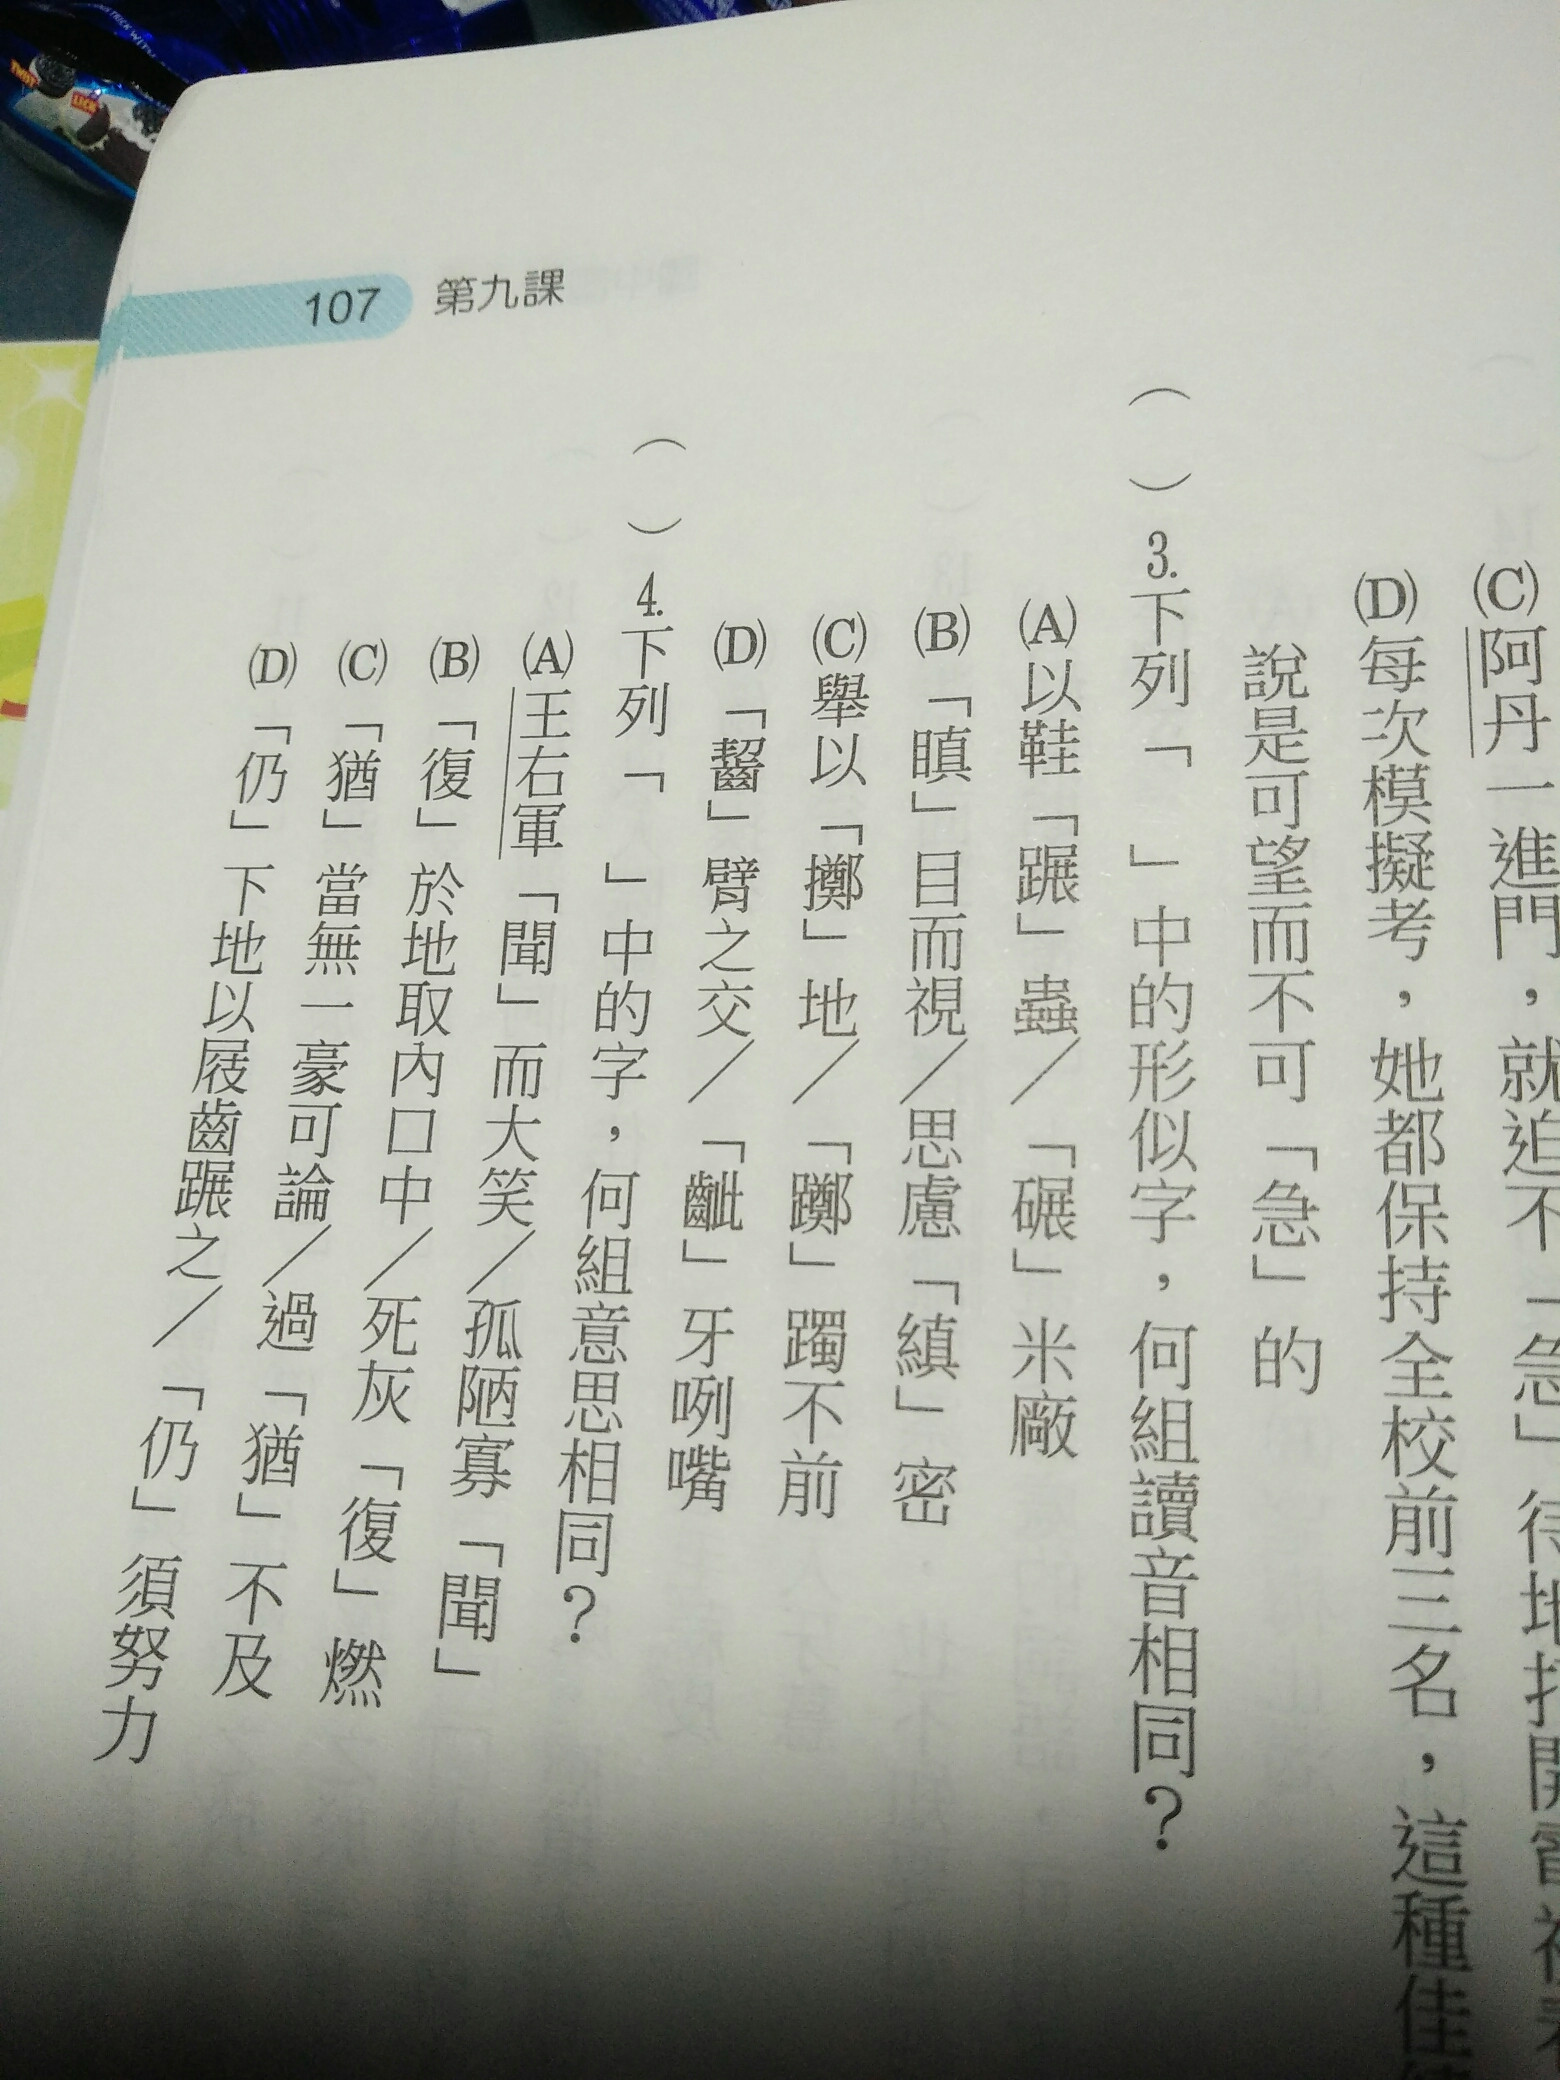 TWIST
LICK
(C)阿丹一進門，就迫不「急」待地打開電視看
(D)每次模擬考，她都保持全校前三名，這種佳績
說是可望而不可「急」的
（　）3.下列「　」中的形似字，何組讀音相同？
(A)以鞋「蹍」蟲／「碾」米廠
(B)「瞋」目而視／思慮「縝」密
(C)舉以「擲」地／「躑」躅不前
(D)「齧」臂之交／「齜」牙咧嘴
（　）4.下列「　」中的字，何組意思相同？
(A)王右軍「聞」而大笑／孤陋寡「聞」
(B)「復」於地取內口中／死灰「復」燃
(C)「猶」當無一豪可論／過「猶」不及
(D)「仍」下地以屐齒蹍之／「仍」須努力
107 第九課